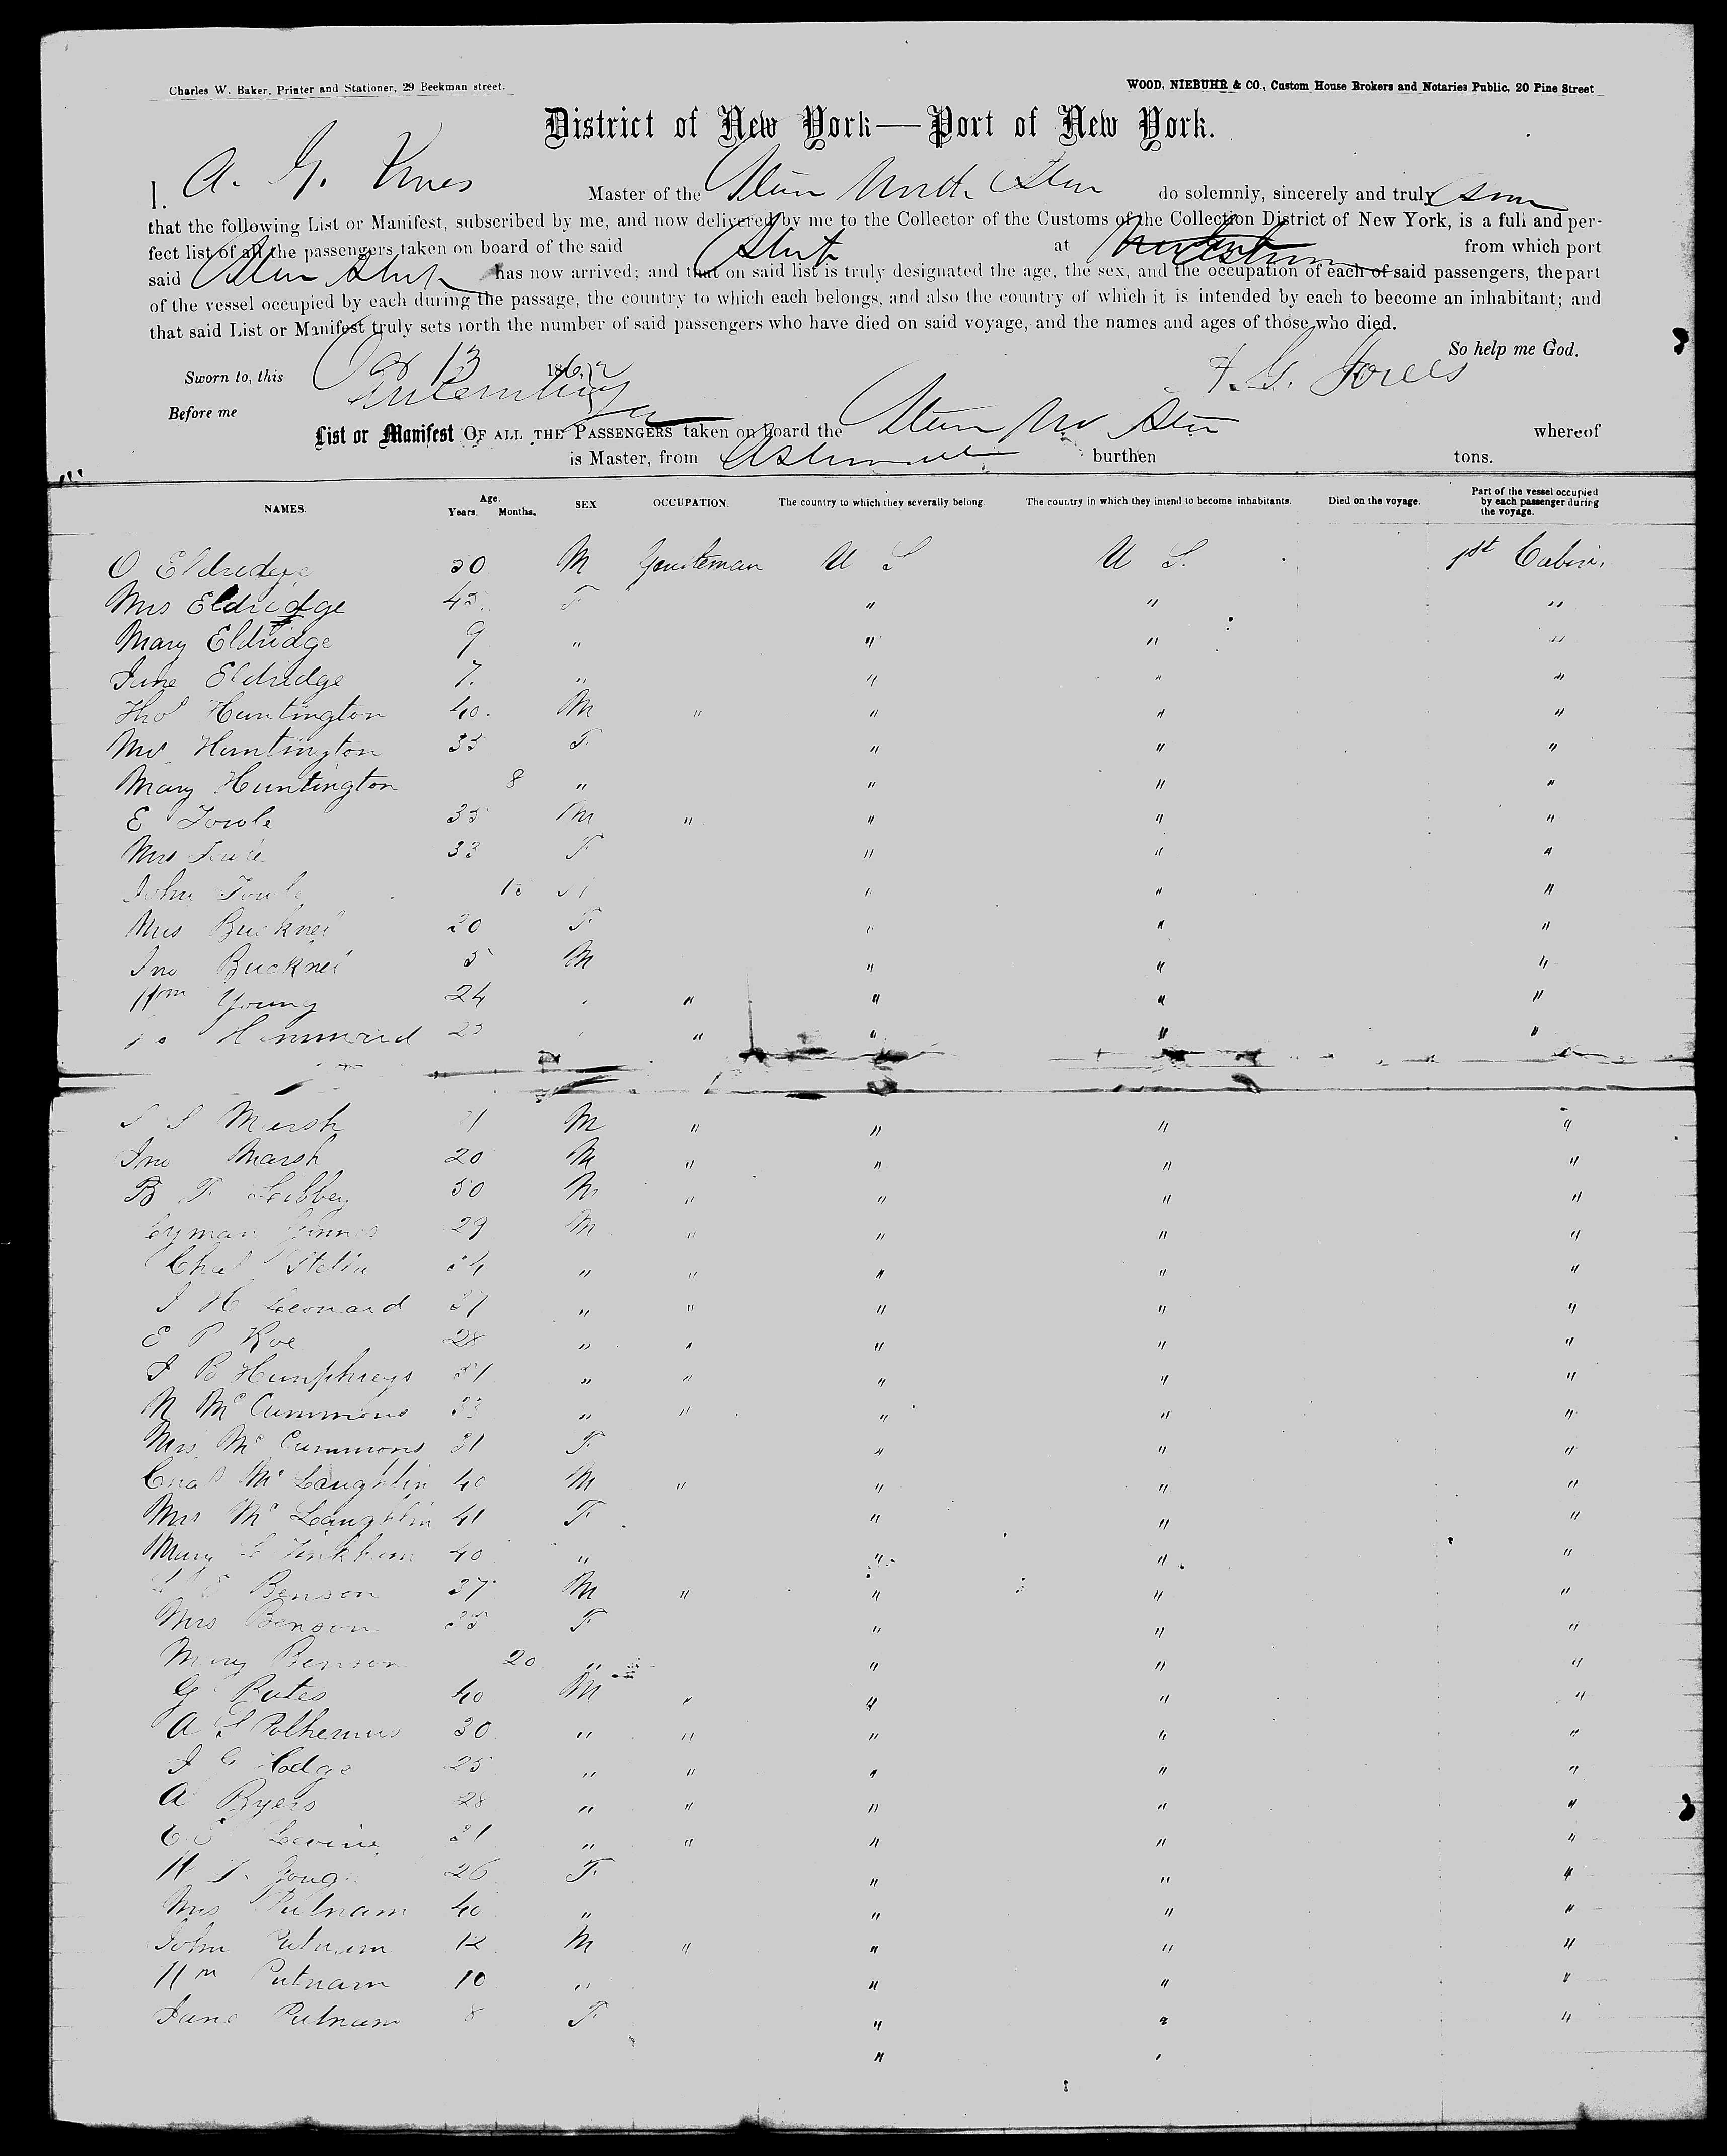 Charles W. Baker, Printer and Stationer, 29 Beekman street.
WOOD, NIEBUHR & CO., Custom House Brokers and Notaries Public, 20 Pine Street
District of New York—Port of New York.
I. A. G. Jones Master of the Steam North Star do solemnly, sincerely and truly swear
that the following List or Manifest, subscribed by me, and now delivered by me to the Collector of the Customs of the Collection District of New York, is a full and per-
fect list of all the passengers taken on board of the said Ship at from which port
said Steam Ship has now arrived; and that on said list is truly designated the age, the sex, and the occupation of each of said passengers, the part
of the vessel occupied by each during the passage, the country to which each belongs, and also the country of which it is intended by each to become an inhabitant; and
that said List or Manifest truly sets forth the number of said passengers who have died on said voyage, and the names and ages of those who died.
So help me God.
Sworn to, this 13 1862
A. G. Jones
Before me
List or Manifest OF ALL THE PASSENGERS taken on board the Steam No Star whereof
is Master, from Aspinwall burthen tons.
NAMES. Age. Years. Months. SEX OCCUPATION. The country to which they severally belong. The country in which they intend to become inhabitants. Died on the voyage. Part of the vessel occupied by each passenger during the voyage.
O Eldredge 50 M Gentleman U S U S. 1st Cabin.
Mrs Eldridge 45 F " " "
Mary Eldridge 9 " " " "
Jane Eldridge 7. " " " "
Thos Huntington 40. M " " " "
Mrs Huntington 35 F " " "
Mary Huntington 8 " " " "
E Towle 35 M " " " "
Mrs Towle 33 F " " "
John Towle M " " "
Mrs Bucknel 20 F " " "
Jno Bucknel 5 M " " "
Wm Young 24 " " " " "
" " " "
Marsh M " " " "
Jno Marsh 20 M " " " "
B F Libbey 50 M " " " "
Lyman 29 M " " " "
Chas " " " " "
J H Leonard 37 " " " " "
E P Roe 28 " " " " "
J B Humphreys 31 " " " " "
N McCummons 33 " " " " "
Mrs McCummons 31 F " " "
Chas McLaughlin 40 M " " " "
Mrs McLaughlin 41 F " " "
Mary Tinkham 40 " " " "
E Benson 37 M " " " "
Mrs Benson 35 F " " "
Mary Benson 20 " " " "
G Bates 40 M " " " "
A S Polhemus 30 " " " " "
J G Hodge 25 " " " " "
A Byers 28 " " " " "
C E Levine 31 " " " " "
26 F " " "
Mrs Putnam 40 " " " "
John Putnam 12 M " " " "
Wm Putnam 10 " " " "
Jane Putnam 8 F " " "
" "